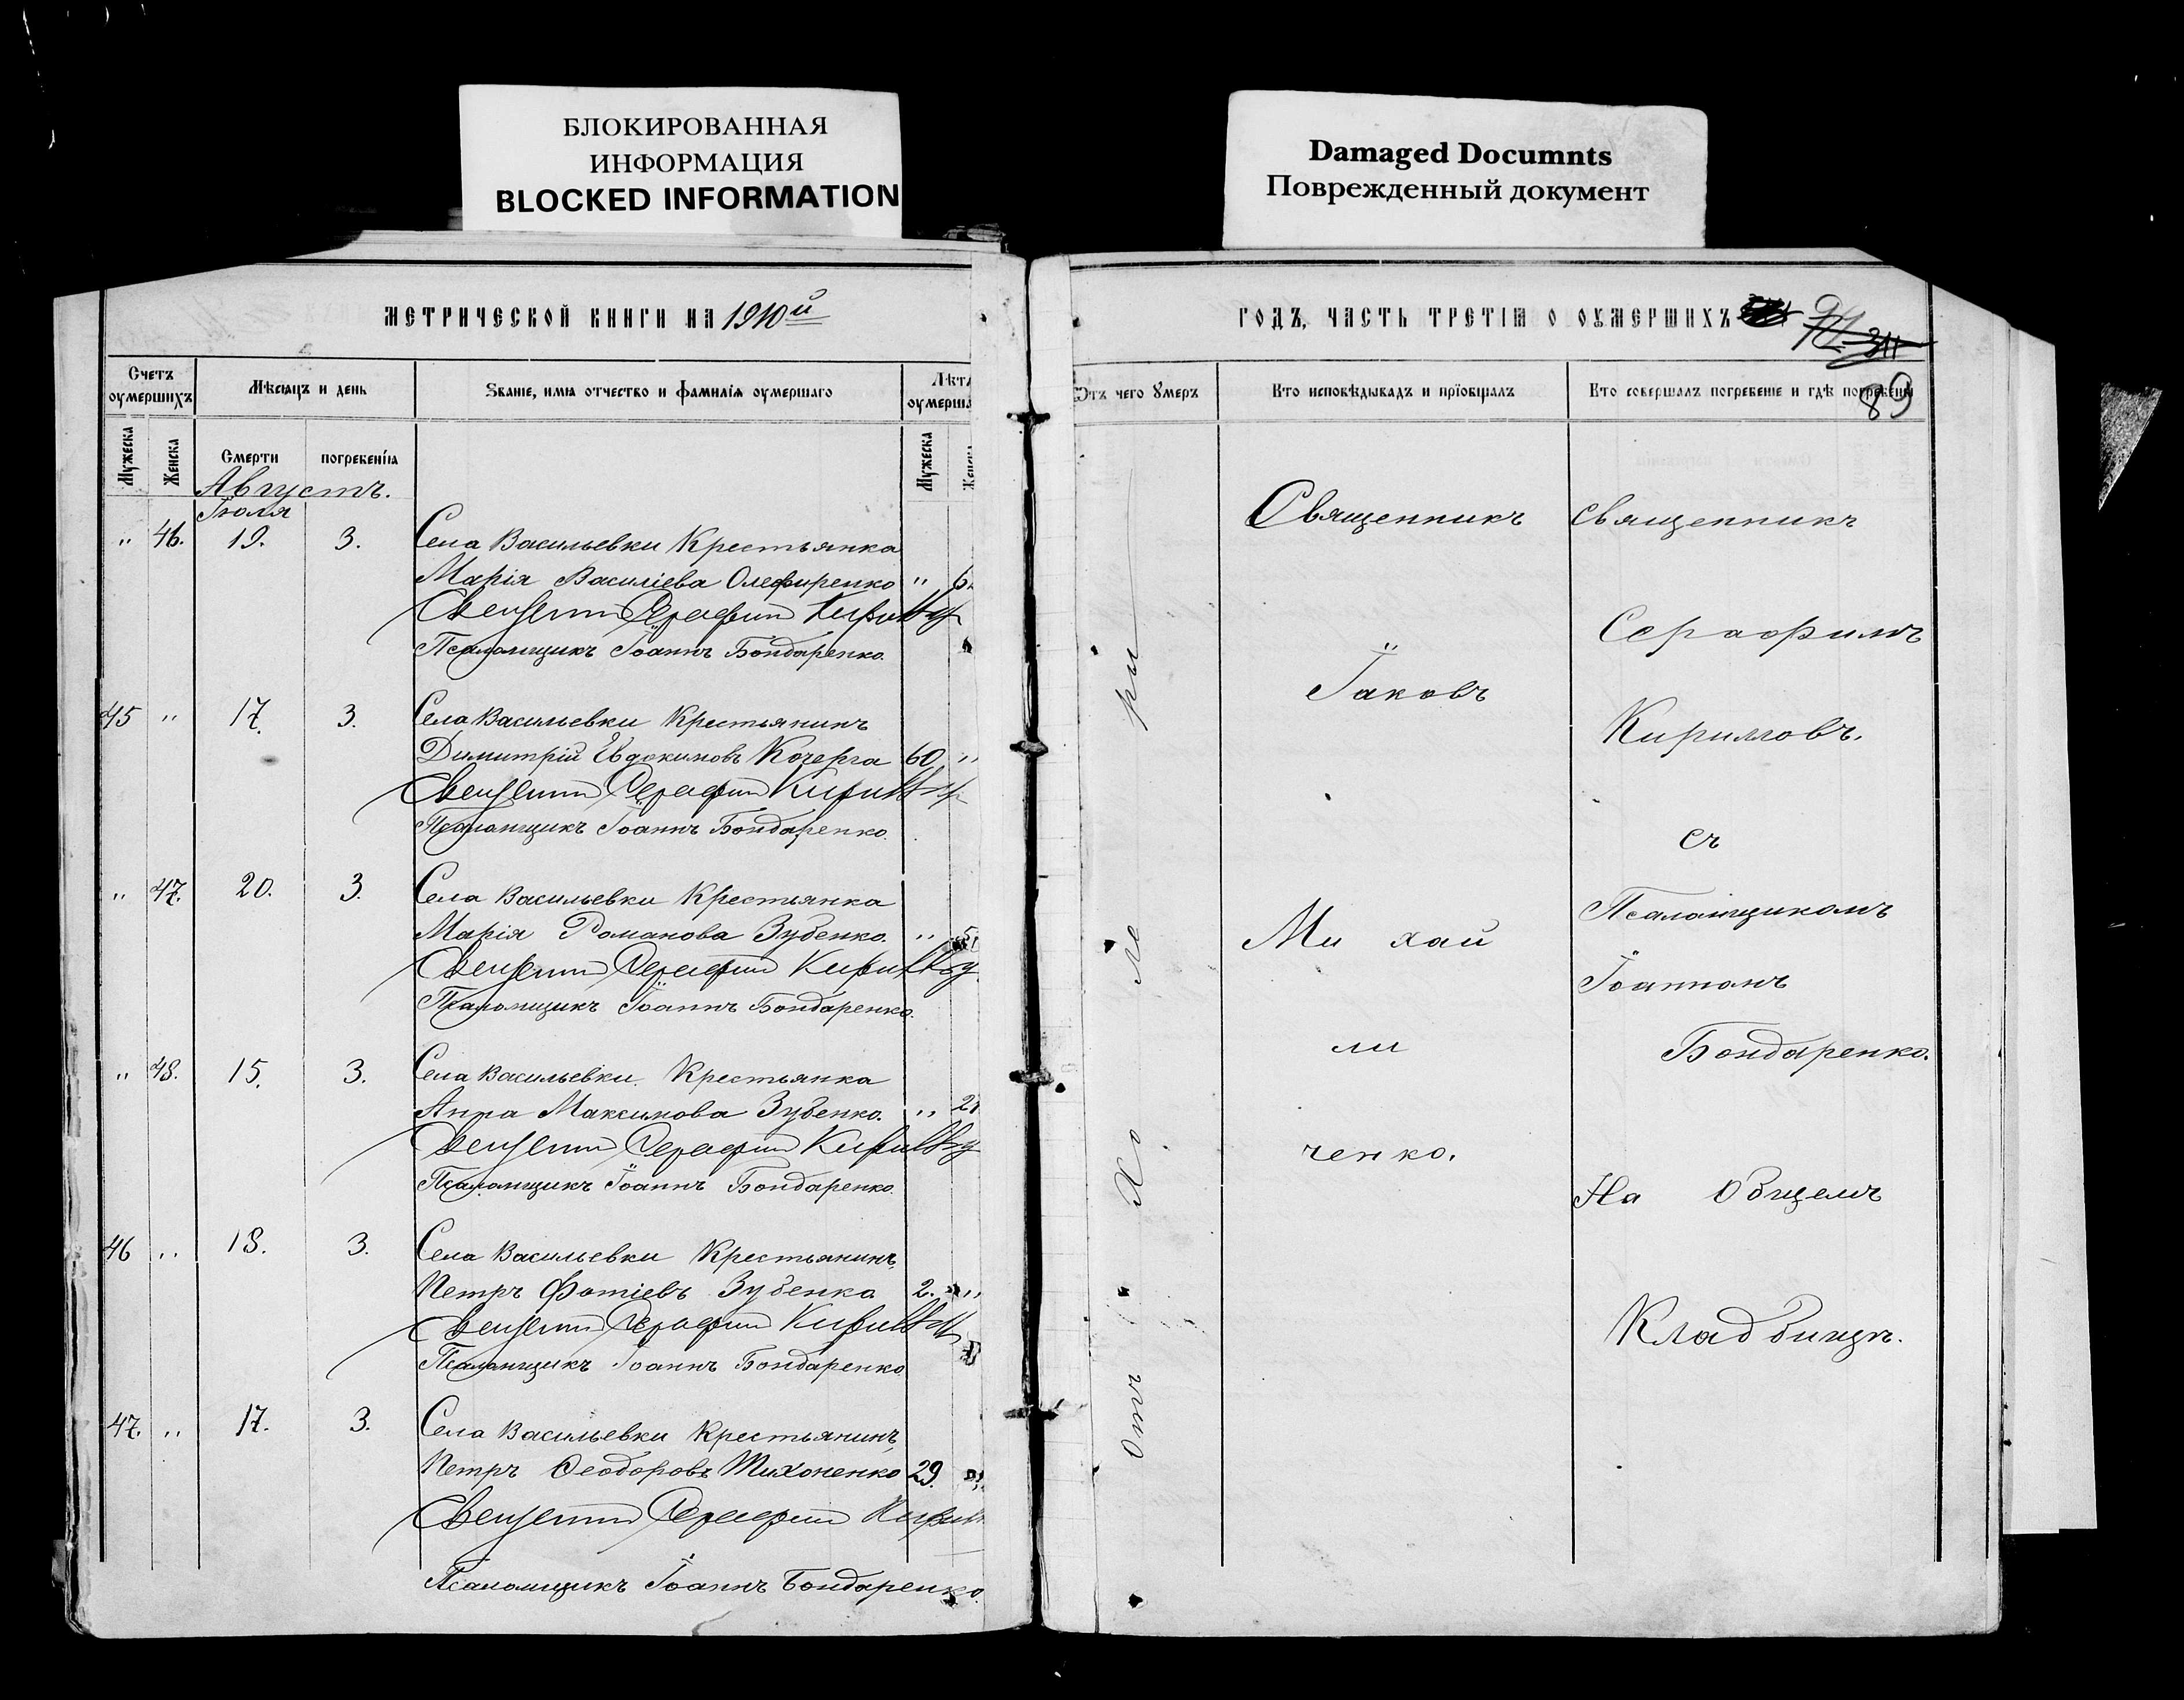 БЛОКИРОВАННАЯ
ИНФОРМАЦИЯ
BLOCKED INFORMATION
Damaged Documnts
Поврежденный документ
МЕТРИЧЕСКОЙ КНИГИ НА 1910й
Счетъ оумершихъ
Мѣсяцъ и день
Званіе, имя отчество и фамилія оумершаго
Лѣта оумерша
Мужеска
Женска
Смерти
погребенія
Мужеска
Женска
Августъ.
Іюля
" 46. 19. 3. Села Васильевки Крестьянка
Марія Василіева Олефиренко "
Священникъ Серафим Кирилловъ
Псаломщикъ Іоаннъ Бондаренко.
45 " 17. 3. Села Васильевки Крестьянинъ
Димитрій Евдокимовъ Кочерга 60 "
Священникъ Серафим Кирилловъ
Псаломщикъ Іоаннъ Бондаренко.
" 47. 20. 3. Села Васильевки Крестьянка
Марія Романова Зубенко. "
Священникъ Серафим Кирилловъ
Псаломщикъ Іоаннъ Бондаренко.
" 48. 15. 3. Села Васильевки Крестьянка
Анна Максимова Зубенко. "
Священникъ Серафим Кирилловъ
Псаломщикъ Іоаннъ Бондаренко.
46 " 18. 3. Села Васильевки Крестьянинъ
Петръ Фотіевъ Зубенко 2. "
Священникъ Серафим Кирилловъ
Псаломщикъ Іоаннъ Бондаренко
47. " 17. 3. Села Васильевки Крестьянинъ
Петръ Ѳеодоровъ Тихоненко 29.
Священникъ Серафим Кирилл
Псаломщикъ Іоаннъ Бондаренко.
ГОДЪ, ЧАСТЬ ТРЕТІЯ О ОУМЕРШИХЪ
89
Отъ чего умеръ
Кто исповѣдывалъ и пріобщалъ
Кто совершалъ погребеніе и гдѣ погребены
Отъ Хо ле ры
Священникъ
Іаковъ
Ми хай
ли
ченко.
священникъ
Серафимъ
Кирилловъ.
съ
Псаломщикомъ
Іоанномъ
Бондаренко.
На Общемъ
Кладбищѣ.